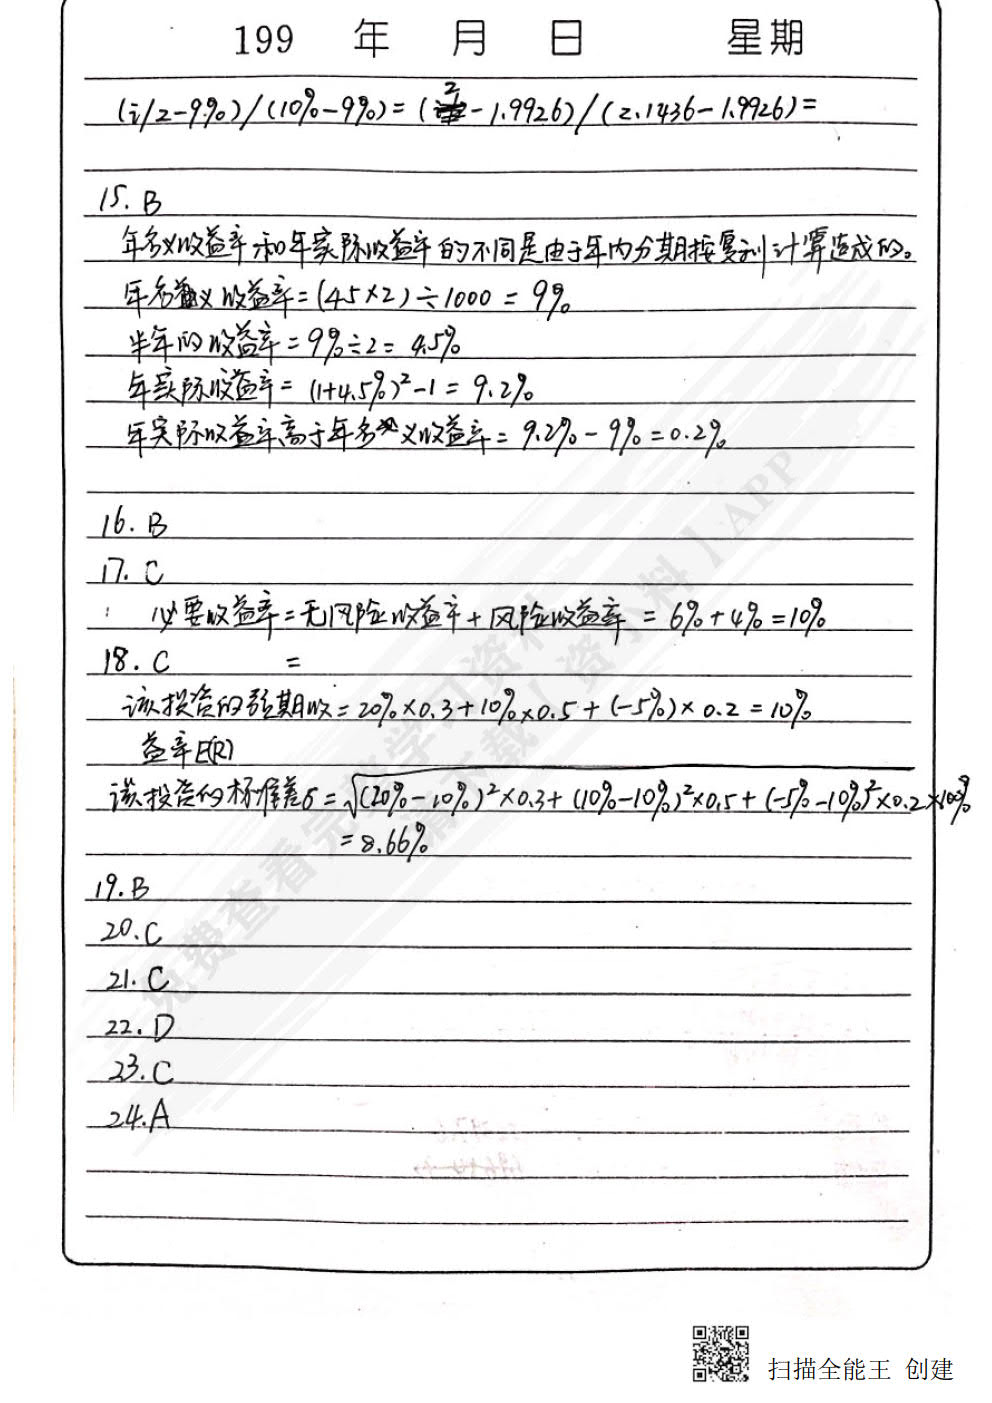 199 年 月 日 星期
(i/2-9%)/(10%-9%)=(2-1.9926)/(2.1436-1.9926)=
15. B
年名义收益率和年实际收益率的不同是由于年内分期按复利计算造成的。
年名义收益率=(45×2)÷1000=9%
半年的收益率=9%÷2=4.5%
年实际收益率=(1+4.5%)²-1=9.2%
年实际收益率高于年名义收益率=9.2%-9%=0.2%
16. B
17. C
必要收益率=无风险收益率+风险收益率=6%+4%=10%
18. C =
该投资的预期收=20%×0.3+10%×0.5+(-5%)×0.2=10%
益率E(R)
该投资的标准差σ=√(20%-10%)²×0.3+(10%-10%)²×0.5+(-5%-10%)²×0.2×100%
=8.66%
19. B
20. C
21. C
22. D
23. C
24. A
免费查看完整学习资料
请下载【资小料】APP
扫描全能王 创建